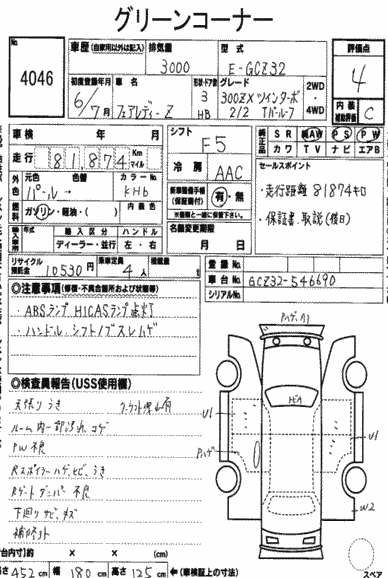 グリーンコーナー
No. 4046
車歴 (自家用以外は記入)
排気量 3000
型式 E-GCZ32
評価点 4
初度登録年月 6/7月
車名 フェアレディーZ
形状・ドア数 3 HB
グレード 300ZXツインターボ 2/2 Tバールーフ
2WD・4WD
内装 補助評価 C
車検 年 月
シフト F5
純正品 SR AW PS PW
カワ TV ナビ エアB
走行 81,874 Km マイル
冷房 AAC
セールスポイント
・走行距離 81874キロ
・保証書、取説(後日)
外色 元色 パール→ 色替
カラーNo. KH6
燃料 ガソリン・軽油・( )
内装色
新車整備手帳 (保証書) 有・無
※書類と一緒に保管下さい。
輸入車 年式 輸入区分 ハンドル
ディーラー・並行 左・右
名義変更期限 月 日
リサイクル預託金 10530円
乗車定員 4人
積載量 t
登録No.
車台No. GCZ32-546690
シリアルNo.
◎注意事項 (修復・不具合箇所および状態等)
・ABSランプ、HICASランプ点灯
・ハンドル、シフトノブスレ、ハゲ
◎検査員報告(USS使用欄)
天張りうき
ルーム内一部汚れ コゲ
PW不良
Rスポイラーハゲ、ヒビ、うき
Rゲートダンパー不良
下廻りサビ、キズ
補修ペイント
Pハゲ
ガラA
U1
U1
Pハゲ
W2
(荷台内寸)約 × × (cm)
長さ 452 cm 幅 180 cm 高さ 125 cm ←(車検証上の寸法)
スペア